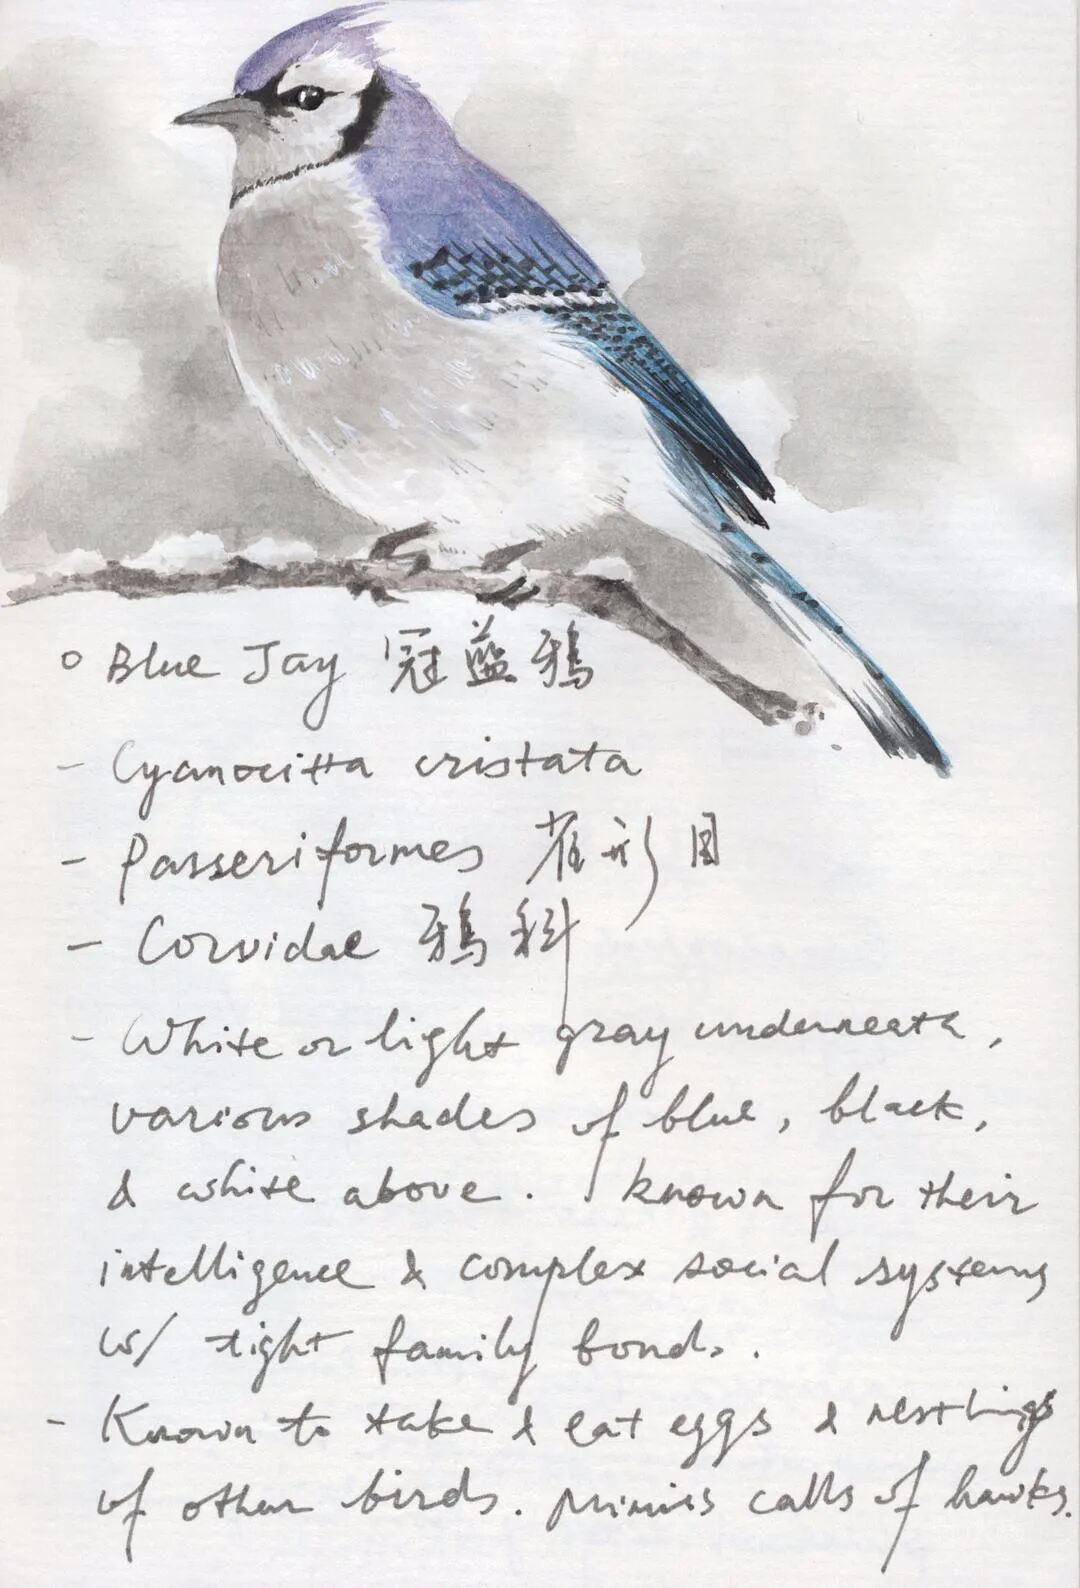 o Blue Jay 冠蓝鸦
- Cyanocitta cristata
- Passeriformes 雀形目
- Corvidae 鸦科
- White or light gray underneath,
various shades of blue, black,
& white above. Known for their
intelligence & complex social systems
w/ tight family bonds.
- Known to take & eat eggs & nestlings
of other birds. Mimics calls of hawks.